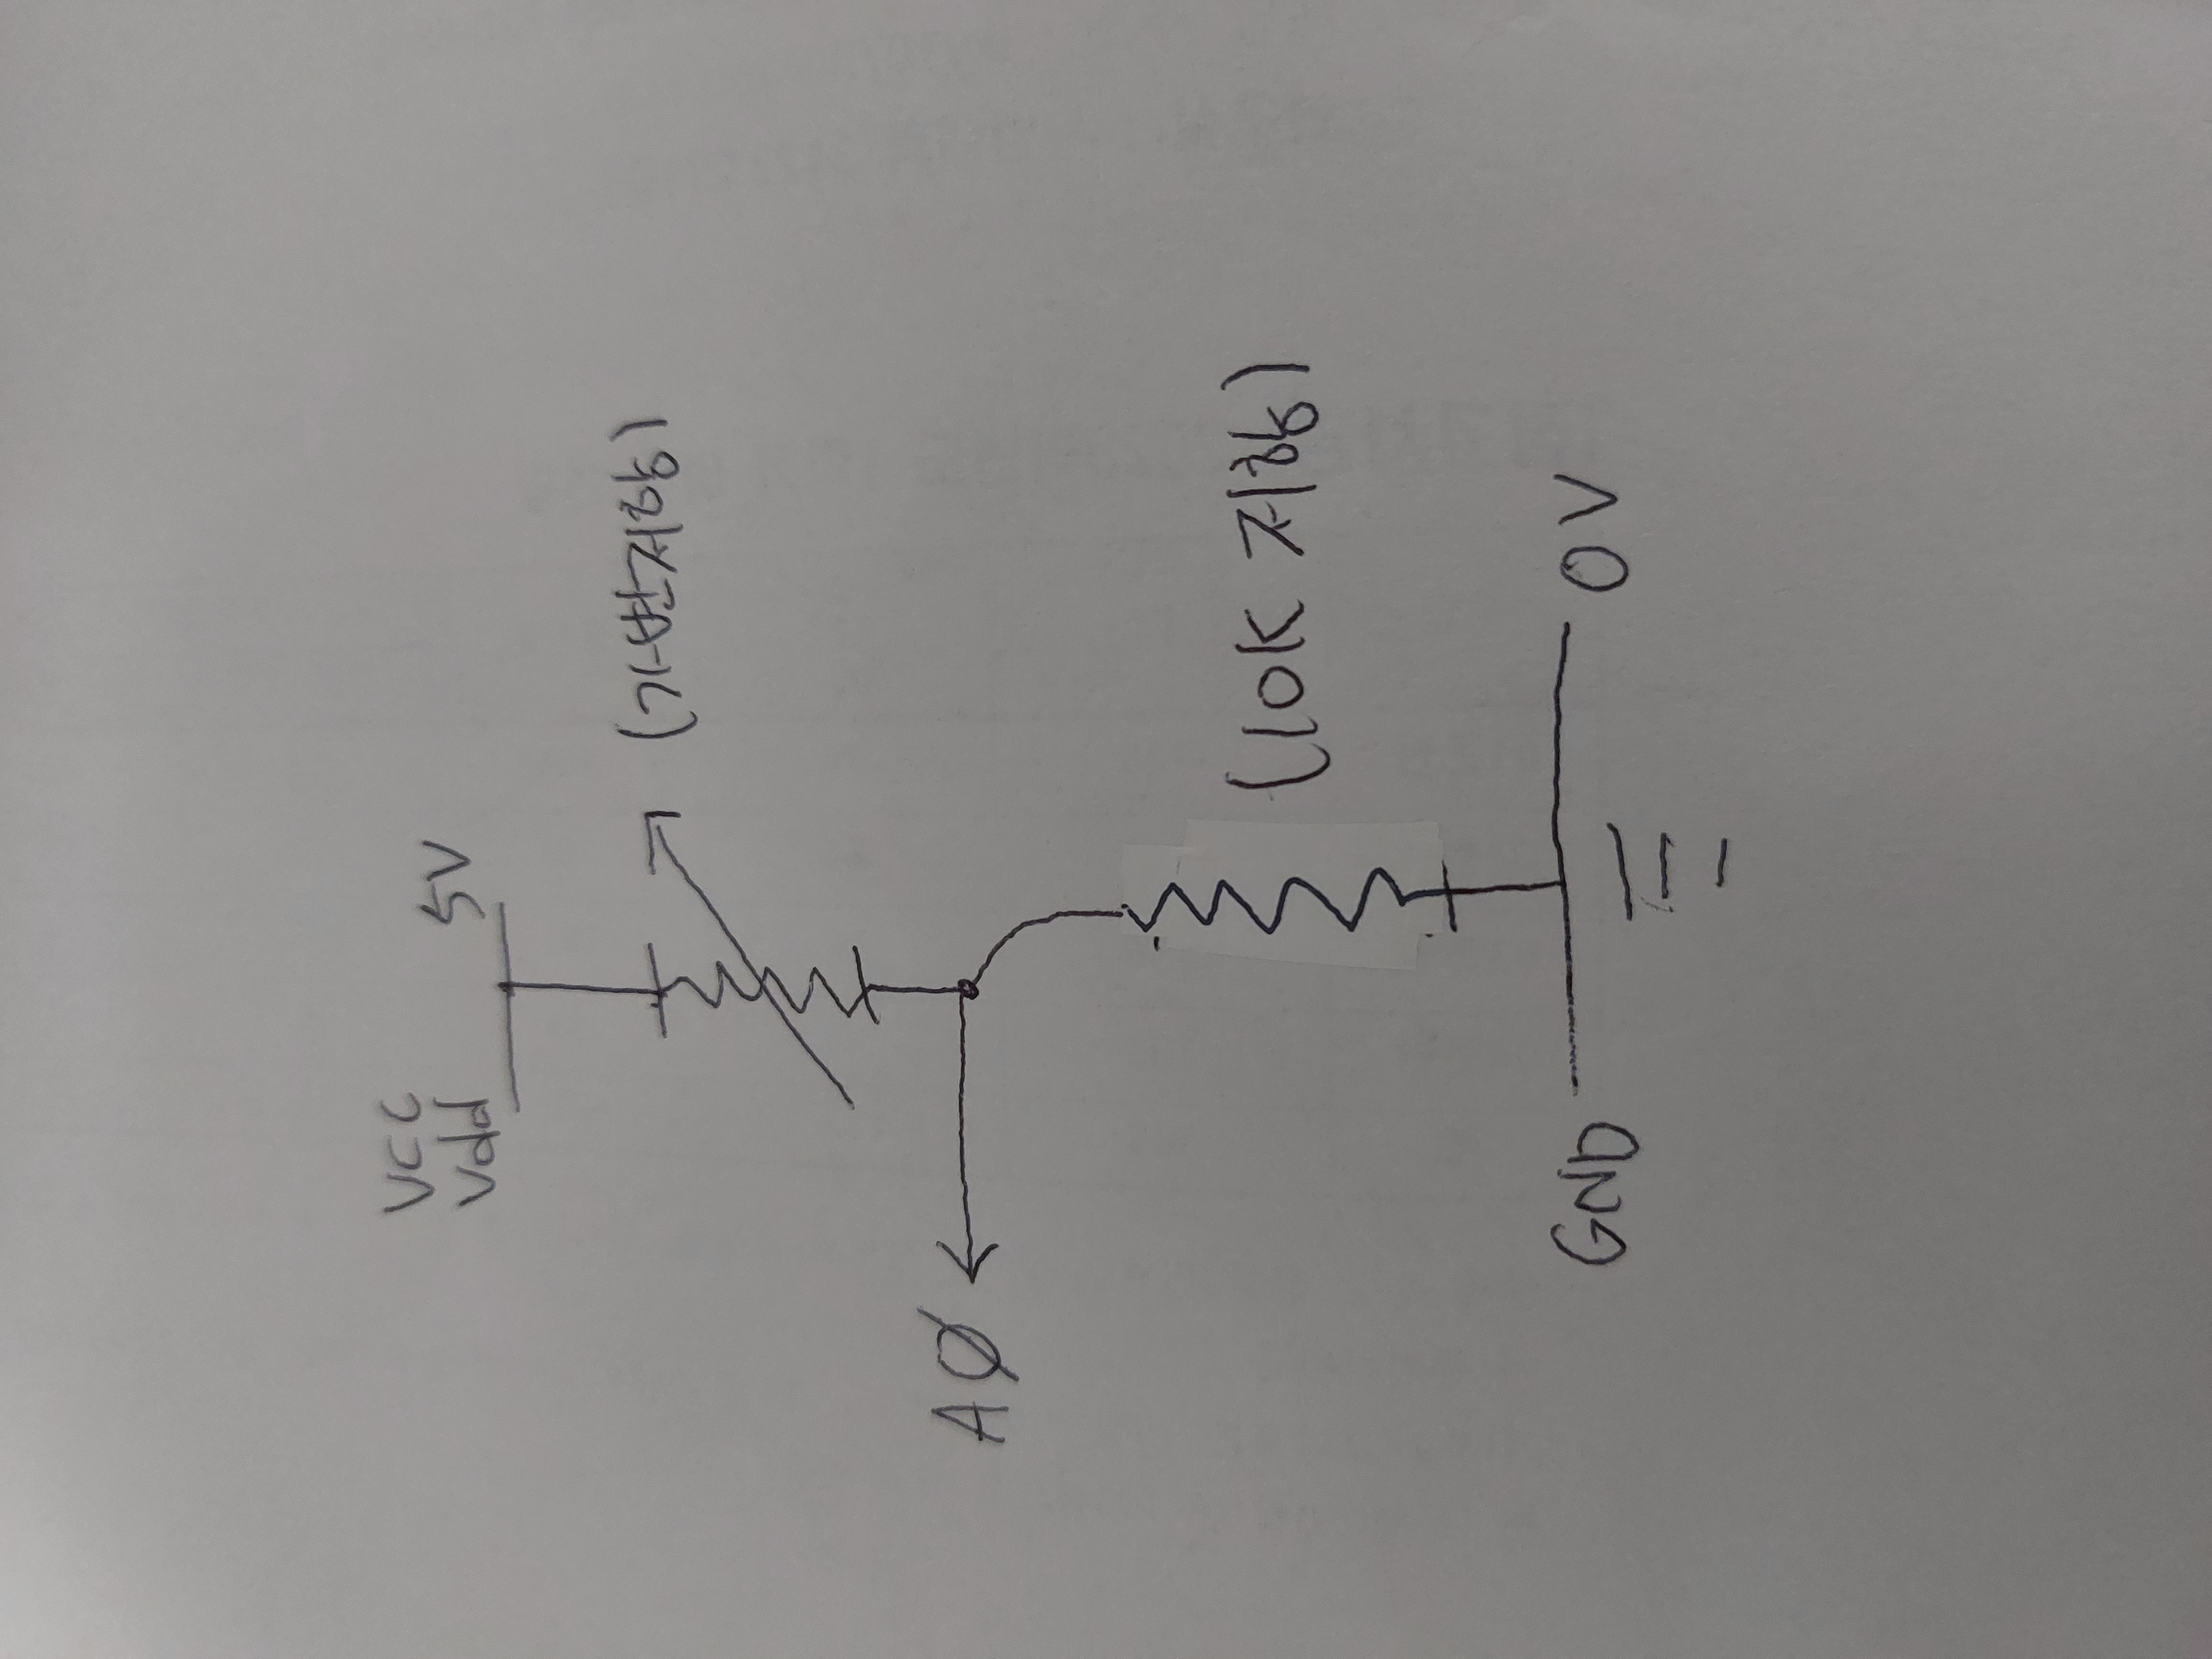 VCC
Vdd
5V
(가변저항)
AØ
(10K 저항)
GND
0V